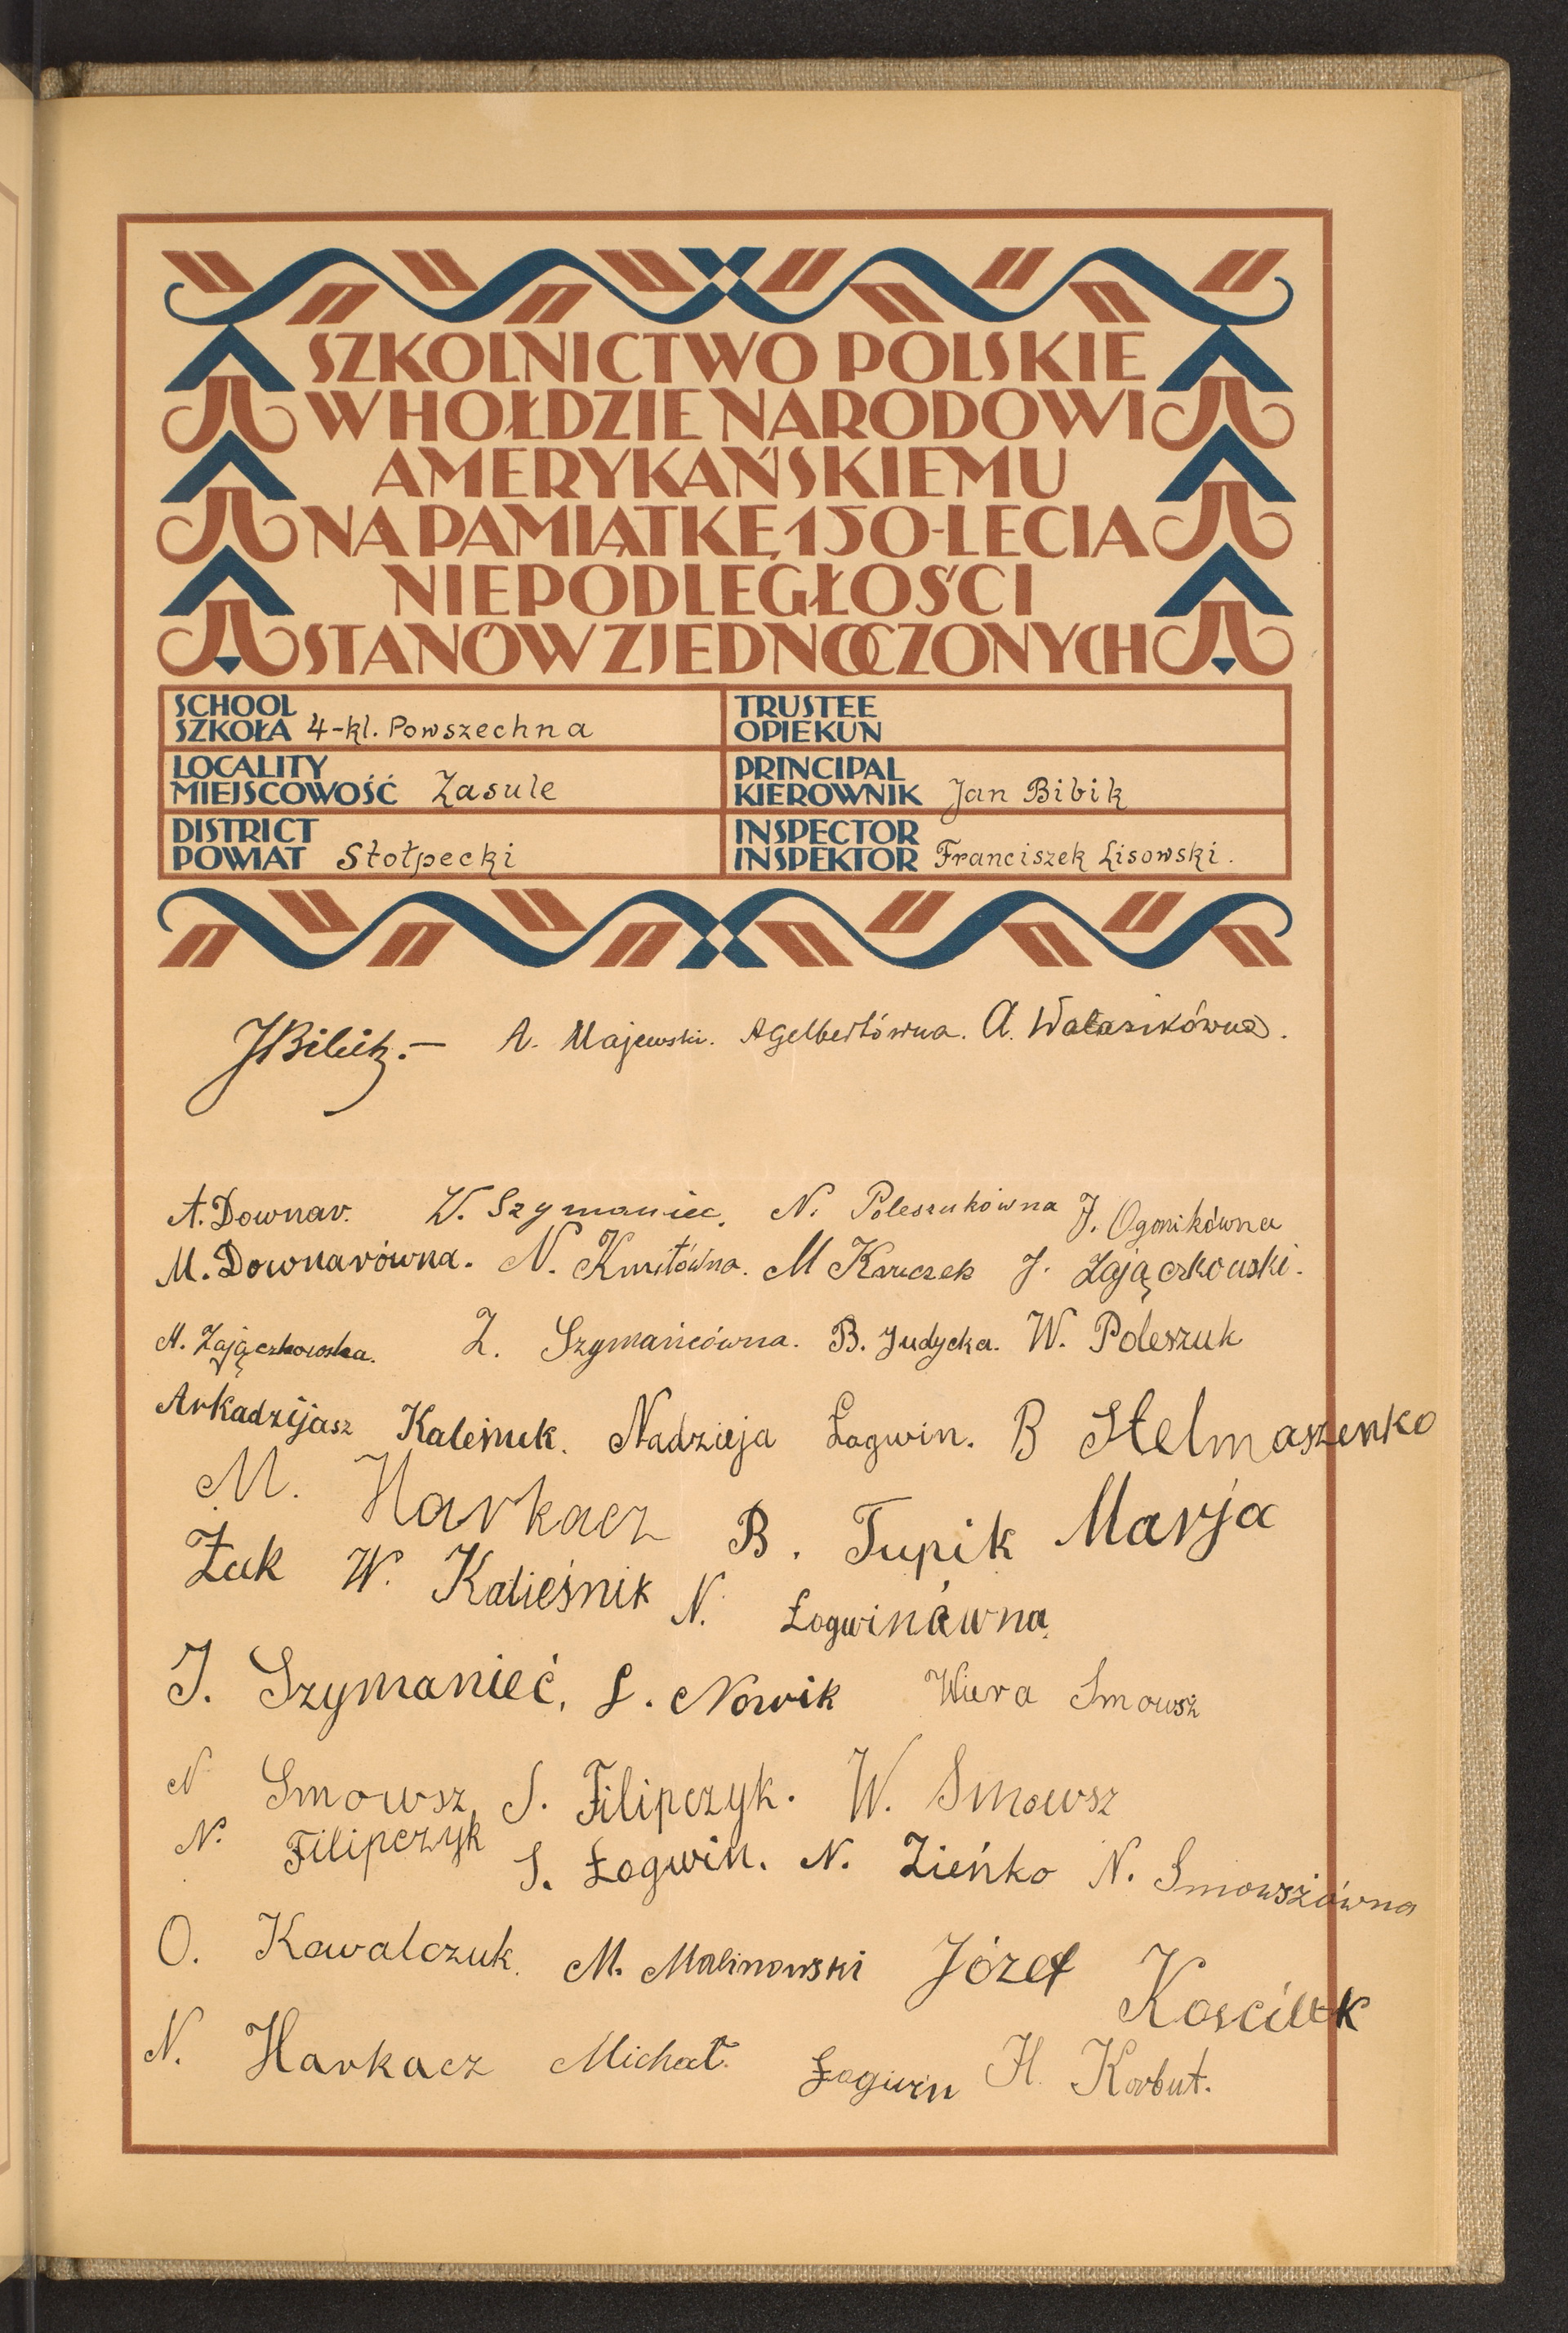 SZKOLNICTWO POLSKIE
W HOŁDZIE NARODOWI
AMERYKAŃSKIEMU
NA PAMIĄTKĘ 150-LECIA
NIEPODLEGŁOŚCI
STANÓW ZJEDNOCZONYCH
SCHOOL
SZKOŁA 4-kl. Powszechna
TRUSTEE
OPIEKUN
LOCALITY
MIEJSCOWOŚĆ Zasule
PRINCIPAL
KIEROWNIK Jan Bibik
DISTRICT
POWIAT Stołpecki
INSPECTOR
INSPEKTOR Franciszek Lisowski.
JBibik.— A. Majewski. AGelbertówna. A. Walasikówna.
A. Downar. W. Szymaniec. N. Poleszukówna J. Ogonikówna
M. Downarówna. N. Kmitówna. M Karczek J. Zajączkowski.
H. Zajączkowska. Z. Szymańcówna. B. Judycka. W. Poleszuk
Arkadzijasz Kaleśnik. Nadzieja Łogwin. B Stelmaszenko
M. Harkacz B. Tupik Marja
Żuk W. Kalieśnik N. Łogwinówna
J. Szymanieć, L. Nowik Wiera Smowsz
N Smowsz S. Filipczyk. W. Smowsz
N. Filipczyk S. Łogwin. N. Zieńko N. Smowszówna
O. Kawalczuk. M. Malinowski Józef Kościuk
N. Harkacz Michał Łogwin H. Korbut.